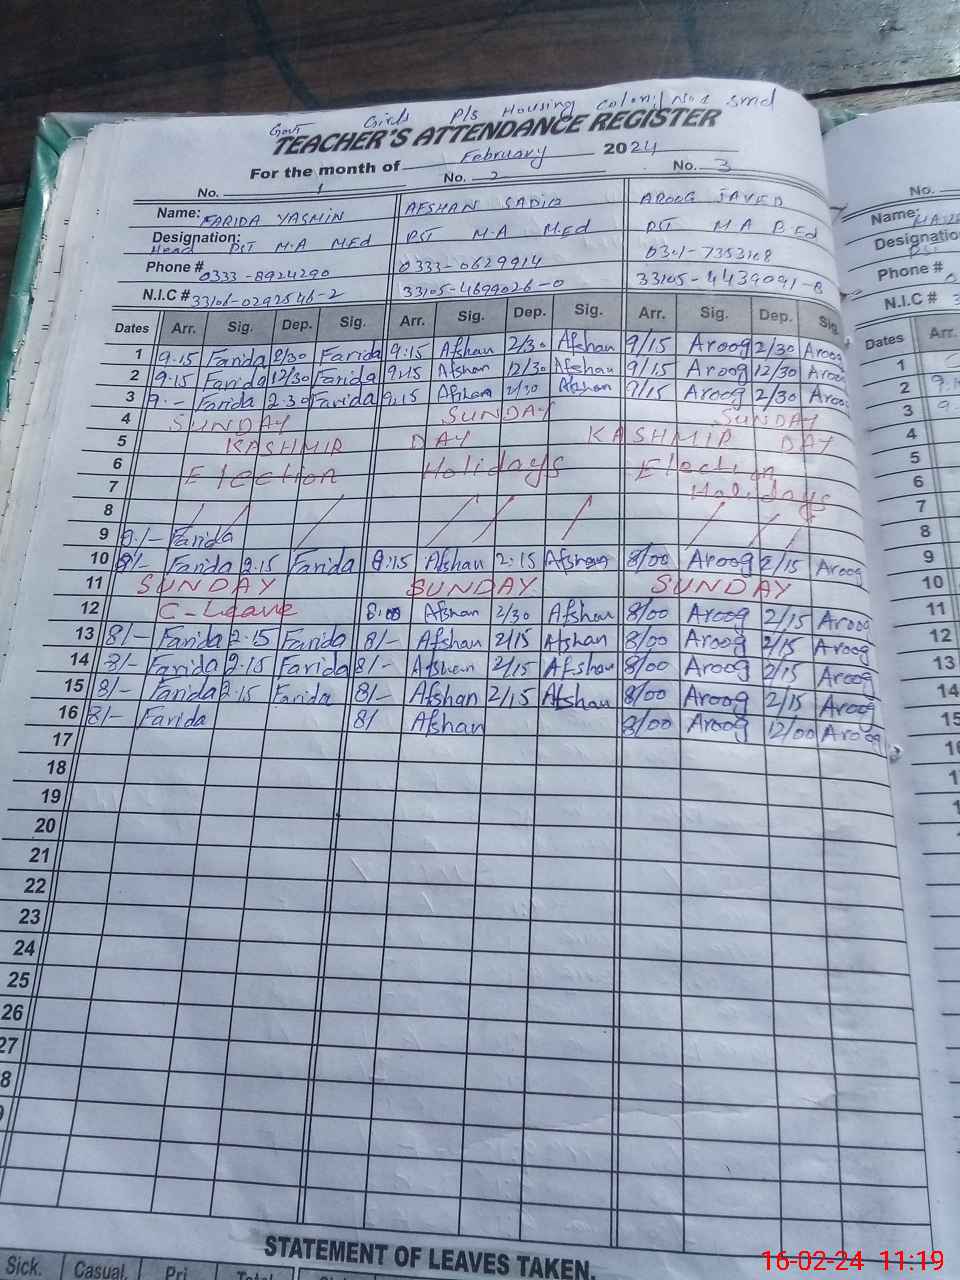 Govt Girls P/s Housing Colony No 1 Smd
TEACHER'S ATTENDANCE REGISTER
For the month of February 2024
No. 1 No. 2 No. 3
Name: FARIDA YASMIN AFSHAN SADIQ AROOG JAVED
Designation: Head PST M.A M.Ed PST M.A M.Ed PST M.A B.Ed
Phone # 0333-8924290 0333-0629914 0301-7353108
N.I.C # 33106-0292546-2 33105-4699026-0 33105-4439091-8
Dates Arr. Sig. Dep. Sig. Arr. Sig. Dep. Sig. Arr. Sig. Dep. Sig.
1 9.15 Farida 2/30 Farida 9:15 Afshan 2/30 Afshan 9/15 Aroog 2/30 Aroog
2 9.15 Farida 12/30 Farida 9:15 Afshan 12/30 Afshan 9/15 Aroog 12/30 Aroog
3 9.- Farida 2.30 Farida 9:15 Afshan 2/30 Afshan 9/15 Aroog 2/30 Aroog
4 SUNDAY SUNDAY SUNDAY
5 KASHMIR DAY KASHMIR DAY
6 Election Holidays Election
7 Holidays
8
9 9./- Farida
10 8/- Farida 2.15 Farida 8:15 Afshan 2:15 Afshan 8/00 Aroog 2/15 Aroog
11 SUNDAY SUNDAY SUNDAY
12 C-Leave 8:00 Afshan 2/30 Afshan 8/00 Aroog 2/15 Aroog
13 8/- Farida 2.15 Farida 8/- Afshan 2/15 Afshan 8/00 Aroog 2/15 Aroog
14 8/- Farida 2.15 Farida 8/- Afshan 2/15 Afshan 8/00 Aroog 2/15 Aroog
15 8/- Farida 2.15 Farida 8/- Afshan 2/15 Afshan 8/00 Aroog 2/15 Aroog
16 8/- Farida 8/ Afshan 8/00 Aroog 12/00 Aroog
17
18
19
20
21
22
23
24
25
26
27
8
STATEMENT OF LEAVES TAKEN.
Sick. Casual. Pri
No.
Name:
Designatio
Phone #
N.I.C # 3
Dates Arr.
1
2
3
4
5
6
7
8
9
10
11
12
13
14
15
16-02-24 11:19